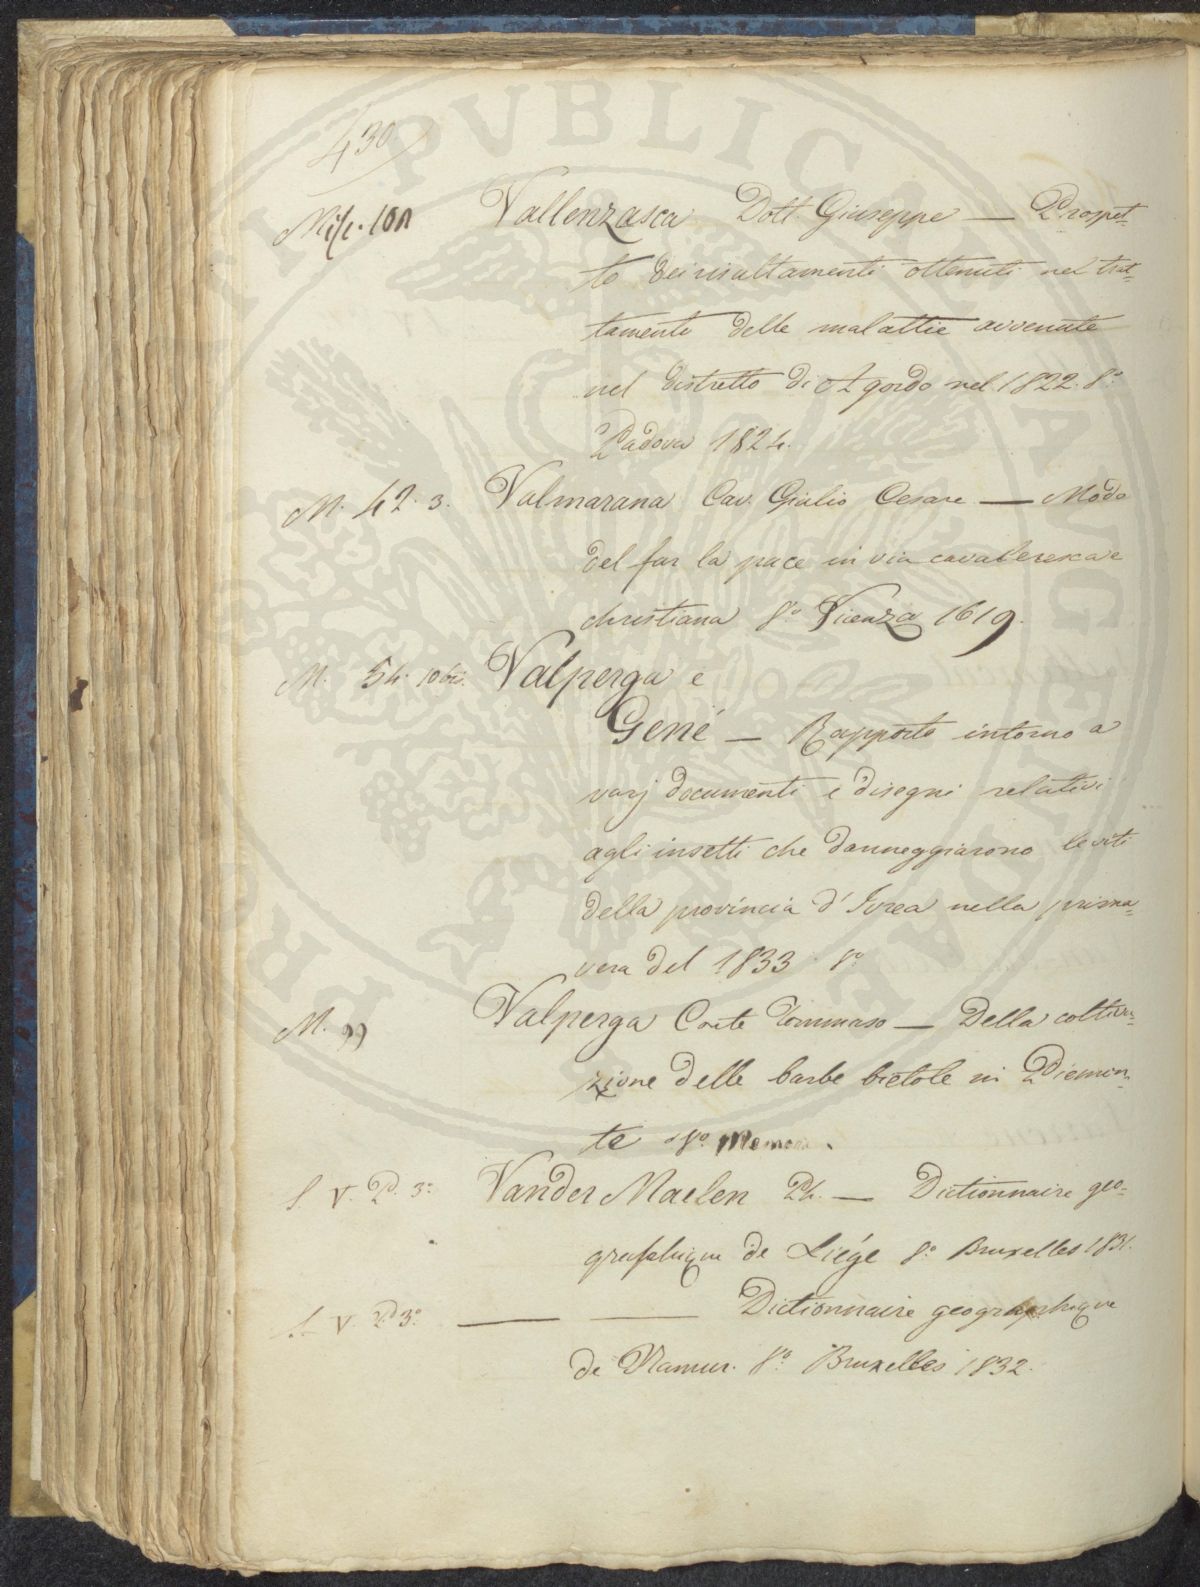 430
Misc. 101 Vallenzasca Dott. Giuseppe — Prospet-
to dei risultamenti ottenuti nel trat-
tamento delle malattie avvenute
nel distretto di Agordo nel 1822. 8.°
Padova 1824.
M. 42. 3. Valmarana Cav. Giulio Cesare — Modo
del far la pace in via cavaleresca e
christiana 8.° Vicenza 1619.
M. 54. 10 bis. Valperga e
Gené — Rapporto intorno a
varj documenti e disegni relativi
agli insetti che danneggiarono le viti
della provincia d'Ivrea nella prima-
vera del 1833 8.°
M. 99 Valperga Conte Tommaso — Della coltiva-
zione delle barbe bietole in Piemon-
te 8.°
S. V. P. 3.° Vander Maelen Ph. — Dictionnaire geo-
graphique de Liége 8.° Bruxelles 1831.
S. V. P. 3.° — — Dictionnaire geographique
de Namur. 8.° Bruxelles 1832.